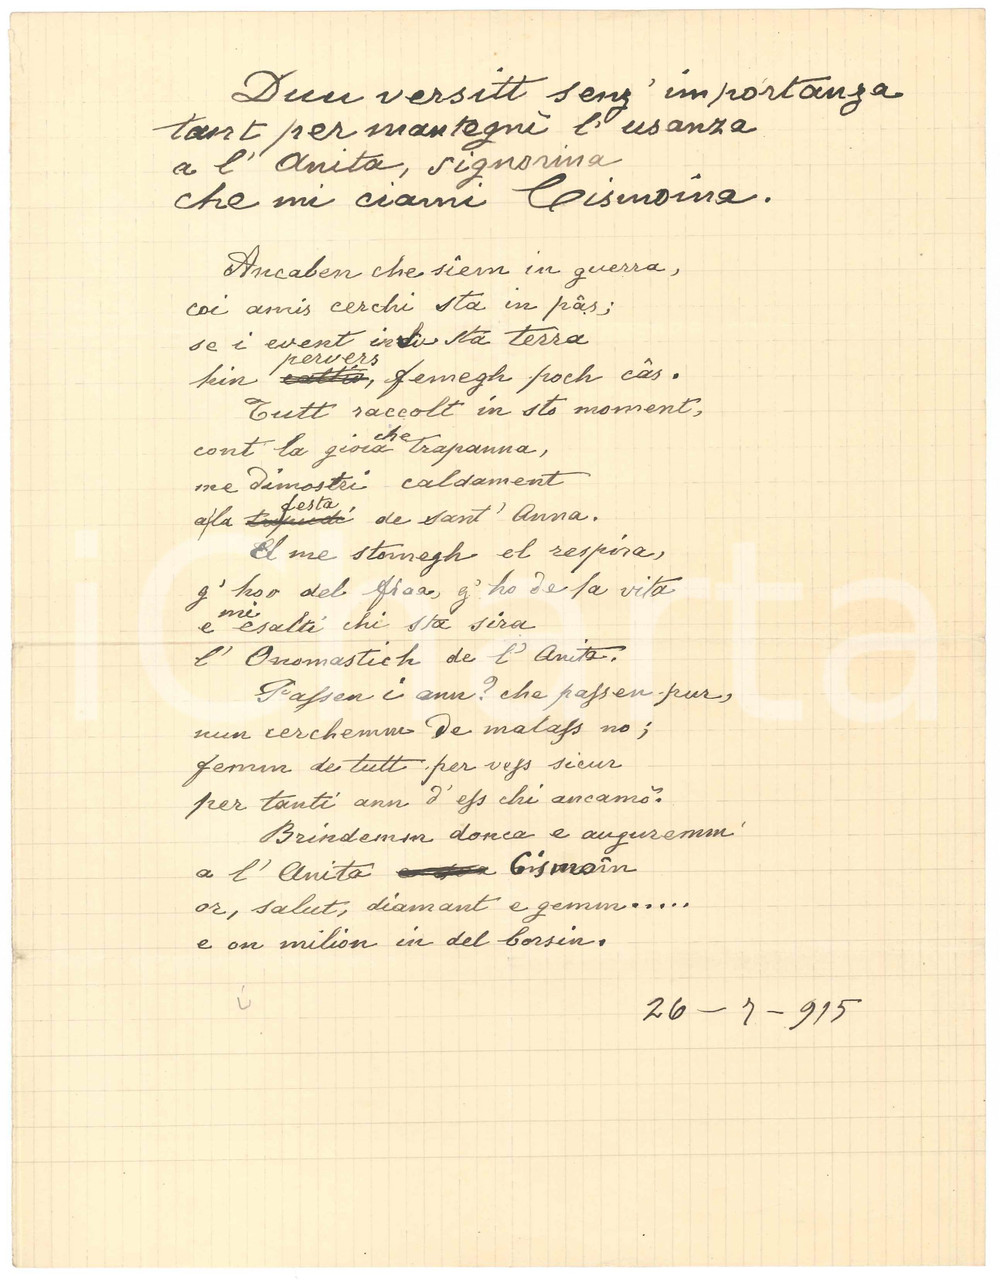 Duu versitt senz' importanza
tant per mantegnì l'usanza
a l'Anita, signorina
che mi ciami Cismoîna.
Ancaben che sîem in guerra,
coi amis cerchi sta in pâs;
se i event in sta terra
hin pervers, femegh poch câs.
Tutt raccolt in sto moment,
cont la gioia che trapanna,
me dimostri caldament
a la festa de sant'Anna.
El me stomegh el respira,
g'hoo del fiaa, g'ho de la vita
e mi esalti chi sta sira
l'Onomastich de l'Anita.
Passen i ann? che passen pur,
nun cerchemm de malass no;
femm de tutt per vess sicur
per tanti ann d'ess chi ancamô.
Brindemm donca e auguremm
a l'Anita Cismoîn
or, salut, diamant e gemm.....
e on milion in del borsin.
26 - 7 - 915
iCharta